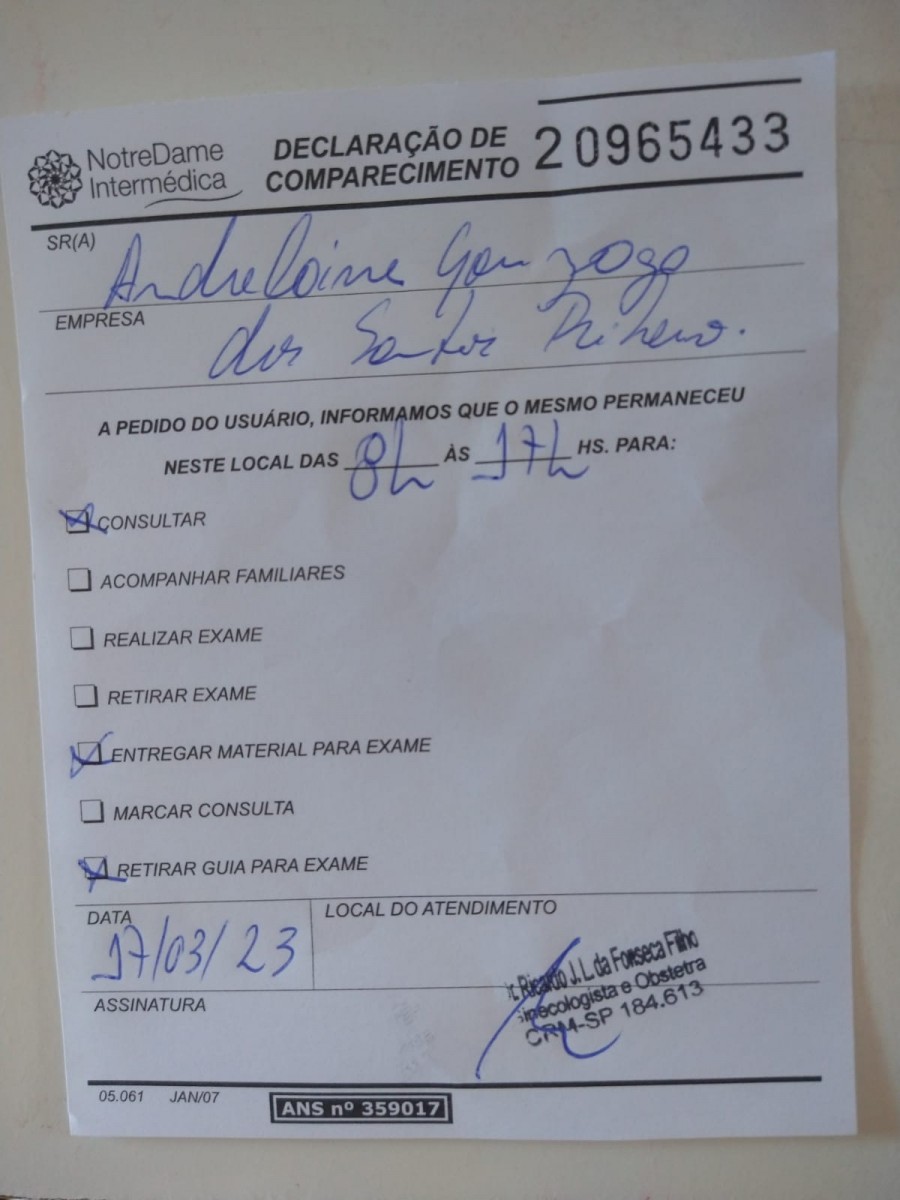 NotreDame
Intermédica
DECLARAÇÃO DE
COMPARECIMENTO
20965433
SR(A)
Andreloine Gonzaga
EMPRESA
dos Santos
A PEDIDO DO USUÁRIO, INFORMAMOS QUE O MESMO PERMANECEU
NESTE LOCAL DAS 8h ÀS 17h HS. PARA:
CONSULTAR
ACOMPANHAR FAMILIARES
REALIZAR EXAME
RETIRAR EXAME
ENTREGAR MATERIAL PARA EXAME
MARCAR CONSULTA
RETIRAR GUIA PARA EXAME
DATA
17/03/23
LOCAL DO ATENDIMENTO
Ricardo J. L. da Fonseca Filho
Ginecologista e Obstetra
CRM-SP 184.613
ASSINATURA
05.061 JAN/07
ANS nº 359017